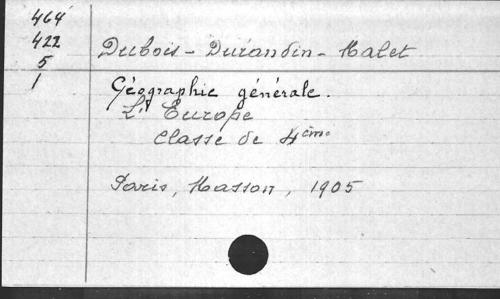 464
422
5
1
Dubois - Durandin - Malet
Géographie générale.
L'Europe
Classe de 4ème
Paris, Masson, 1905